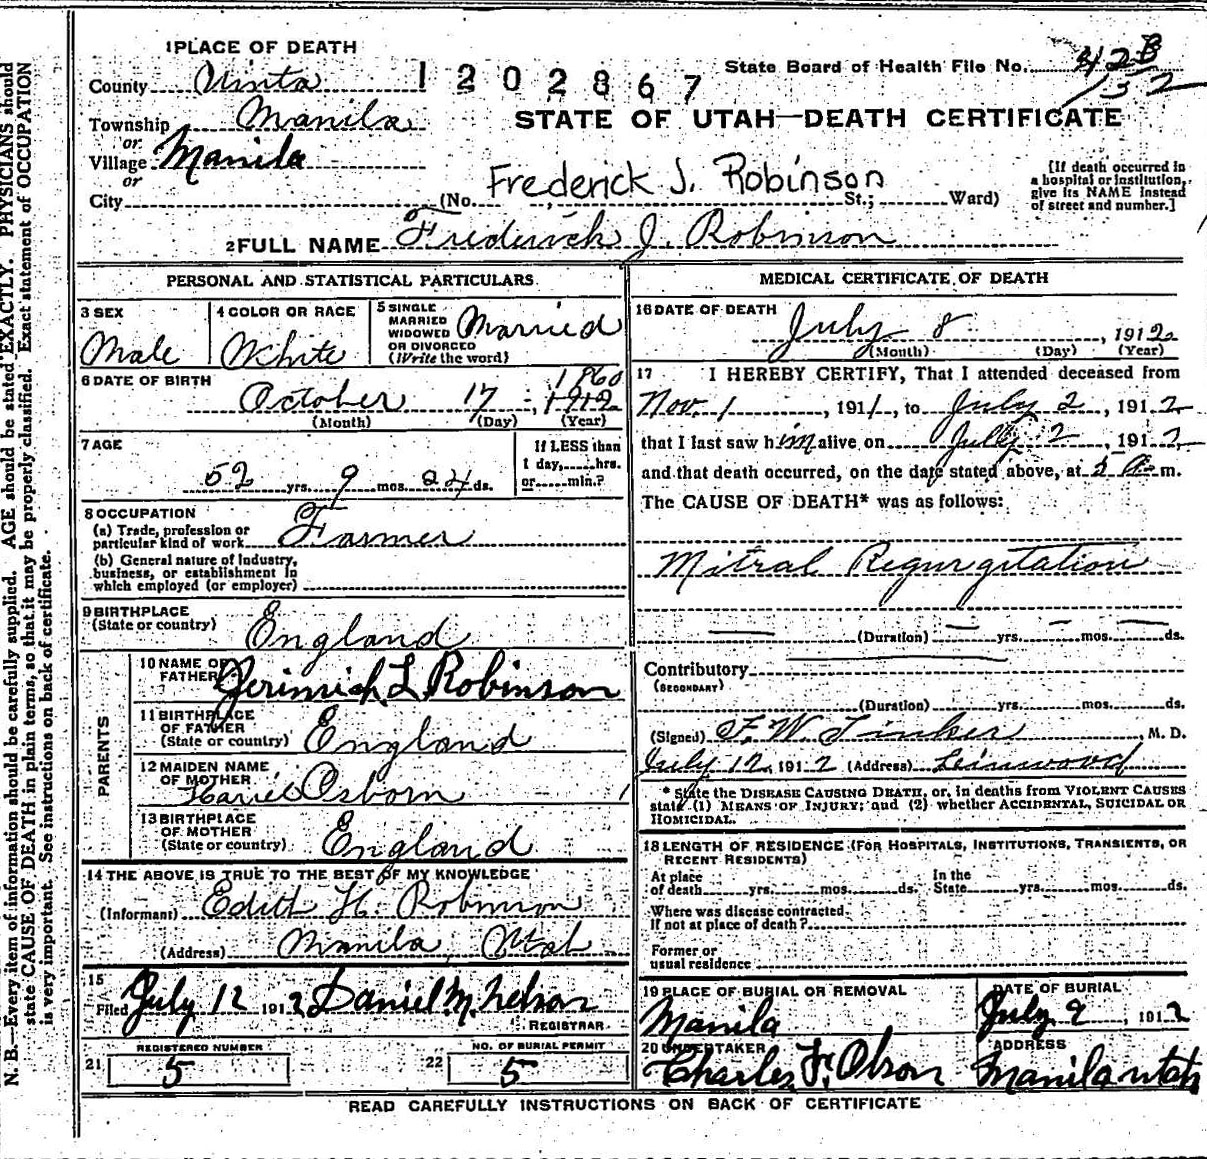 1 PLACE OF DEATH
County Uinta
1202867
State Board of Health File No. 42B
132
Township Manila
or
Village Manila
or
City
STATE OF UTAH—DEATH CERTIFICATE
(No. Frederick J. Robinson St.; Ward)
[If death occurred in
a hospital or institution,
give its NAME instead
of street and number.]
2 FULL NAME Frederick J. Robinson
PERSONAL AND STATISTICAL PARTICULARS
3 SEX
Male
4 COLOR OR RACE
White
5 SINGLE
MARRIED
WIDOWED
OR DIVORCED
(Write the word)
Married
6 DATE OF BIRTH
1860
October 17 1912
(Month) (Day) (Year)
7 AGE
52 yrs. 9 mos. 24 ds.
If LESS than
1 day, hrs.
or min.?
8 OCCUPATION
(a) Trade, profession or
particular kind of work Farmer
(b) General nature of industry,
business, or establishment in
which employed (or employer)
9 BIRTHPLACE
(State or country) England
PARENTS
10 NAME OF
FATHER Jerimiah L Robinson
11 BIRTHPLACE
OF FATHER
(State or country) England
12 MAIDEN NAME
OF MOTHER
Osborn
13 BIRTHPLACE
OF MOTHER
(State or country) England
14 THE ABOVE IS TRUE TO THE BEST OF MY KNOWLEDGE
(Informant) Edith H. Robinson
(Address) Manila, Utah
15
Filed July 12 1912 Daniel M. Nelson
REGISTRAR
REGISTERED NUMBER
21 5
NO. OF BURIAL PERMIT
22 5
MEDICAL CERTIFICATE OF DEATH
16 DATE OF DEATH
July 8, 1912
(Month) (Day) (Year)
17 I HEREBY CERTIFY, That I attended deceased from
Nov. 1, 1911, to July 2, 1912
that I last saw him alive on July 2, 1912
and that death occurred, on the date stated above, at A. m.
The CAUSE OF DEATH* was as follows:
Mitral Regurgitation
(Duration) yrs. mos. ds.
Contributory
(SECONDARY)
(Duration) yrs. mos. ds.
(Signed) F. W. Tinker, M. D.
July 12, 1912 (Address) Leinwood
* State the DISEASE CAUSING DEATH, or, in deaths from VIOLENT CAUSES
state (1) MEANS OF INJURY; and (2) whether ACCIDENTAL, SUICIDAL OR
HOMICIDAL.
18 LENGTH OF RESIDENCE (FOR HOSPITALS, INSTITUTIONS, TRANSIENTS, OR
RECENT RESIDENTS)
At place
of death yrs. mos. ds.
In the
State yrs. mos. ds.
Where was disease contracted,
if not at place of death?
Former or
usual residence
19 PLACE OF BURIAL OR REMOVAL
Manila
DATE OF BURIAL
July 9, 1912
20 UNDERTAKER
Charles F. Olson
ADDRESS
Manila utah
READ CAREFULLY INSTRUCTIONS ON BACK OF CERTIFICATE
N. B.—Every item of information should be carefully supplied. AGE should be stated EXACTLY. PHYSICIANS should
state CAUSE OF DEATH in plain terms, so that it may be properly classified. Exact statement of OCCUPATION
is very important. See instructions on back of certificate.